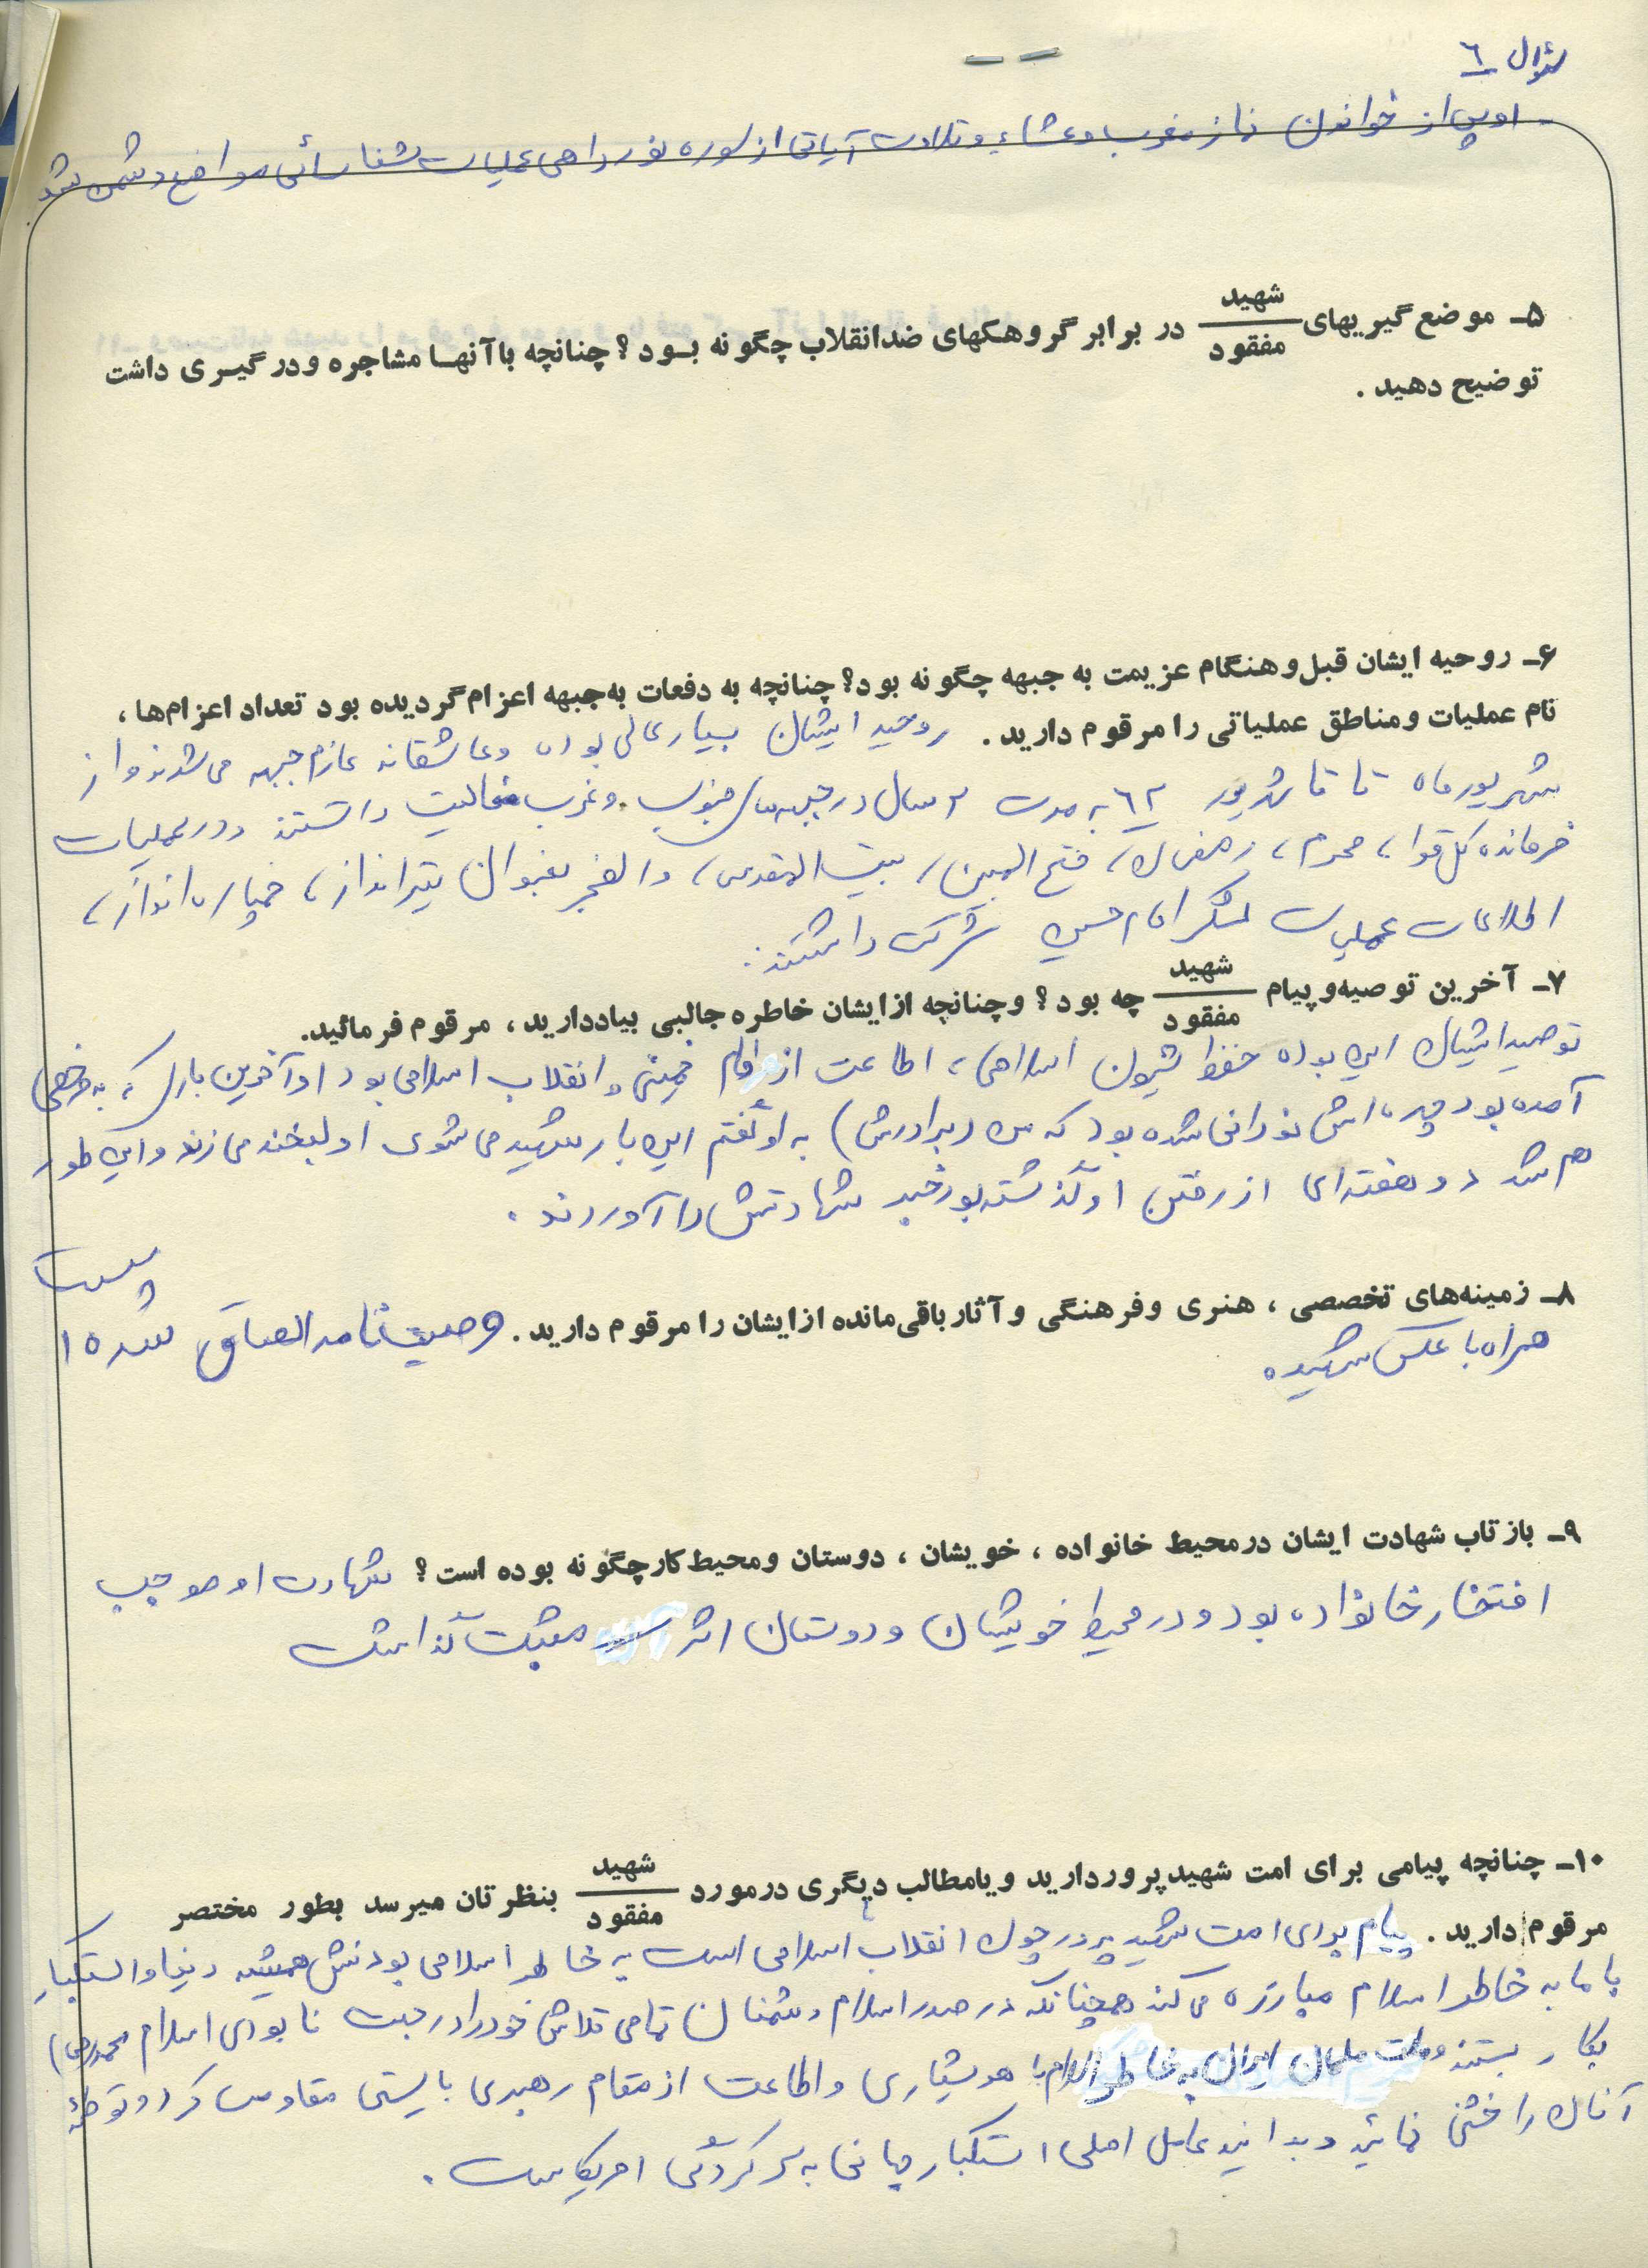 سؤال ٦
- او پس از خواندن نماز مغرب و عشاء و تلاوت آیاتی از سوره نور راهی عملیات شناسائی مواضع دشمن شد
۵ـ موضع گیریهای شهید / مفقود در برابر گروهکهای ضدانقلاب چگونه بود؟ چنانچه باآنها مشاجره ودرگیری داشت
توضیح دهید .
۶ـ روحیه ایشان قبل وهنگام عزیمت به جبهه چگونه بود؟ چنانچه به دفعات به جبهه اعزام گردیده بود تعداد اعزام‌ها ،
نام عملیات ومناطق عملیاتی را مرقوم دارید . روحیه ایشان بسیار عالی بوده و عاشقانه عازم جبهه می شدند و از
شهریور ماه تا شهریور ٦٢ به مدت ٢ سال در جبهه های جنوب و غرب فعالیت داشتند و در عملیات
فرمانده کل قوا، محرم، رمضان، فتح المبین، بیت المقدس، والفجر بعنوان تیرانداز، خمپاره انداز،
اطلاعات عملیات لشکر امام حسین شرکت داشتند.
۷ـ آخرین توصیه وپیام شهید / مفقود چه بود؟ وچنانچه ازایشان خاطره جالبی بیاددارید، مرقوم فرمائید.
توصیه ایشان این بوده حفظ شئون اسلامی، اطاعت از امام خمینی و انقلاب اسلامی بود او آخرین باری که به مرخصی
آمده بود چهره اش نورانی شده بود که من (برادرش) به او گفتم این بار شهید می شوی او لبخند می زند و این طور
هم شد دو هفته ای از رفتن او گذشته بود خبر شهادتش را آوردند .
۸ـ زمینه‌های تخصصی ، هنری وفرهنگی وآثارباقی‌مانده ازایشان را مرقوم دارید . وصیت نامه الصاق شده ا
پیوست
همراه با عکس شهید
۹ـ بازتاب شهادت ایشان درمحیط خانواده ، خویشان ، دوستان ومحیط کارچگونه بوده است؟ شهادت او موجب
افتخار خانواده بود و در محیط خویشان و دوستان اثر مثبت گذاشت
۱۰ـ چنانچه پیامی برای امت شهیدپروردارید ویامطالب دیگری درمورد شهید / مفقود بنظرتان میرسد بطور مختصر
مرقوم دارید . پیام برای امت شهید پرور چون انقلاب اسلامی است به خاطر اسلامی بودنش همیشه دنیا و استکبار
با ما به خاطر اسلام مبارزه می کند همچنانکه در صدر اسلام دشمنان تمامی تلاش خود را در جهت نابودی اسلام محمد (ص)
بکار بستند و ملت مسلمان ایران به خاطر اسلام با هوشیاری و اطاعت از مقام رهبری بایستی مقاومت کرد و توطئه
آنان را خنثی نمائید و بدانید عامل اصلی استکبار جهانی به سرکردگی امریکاست .